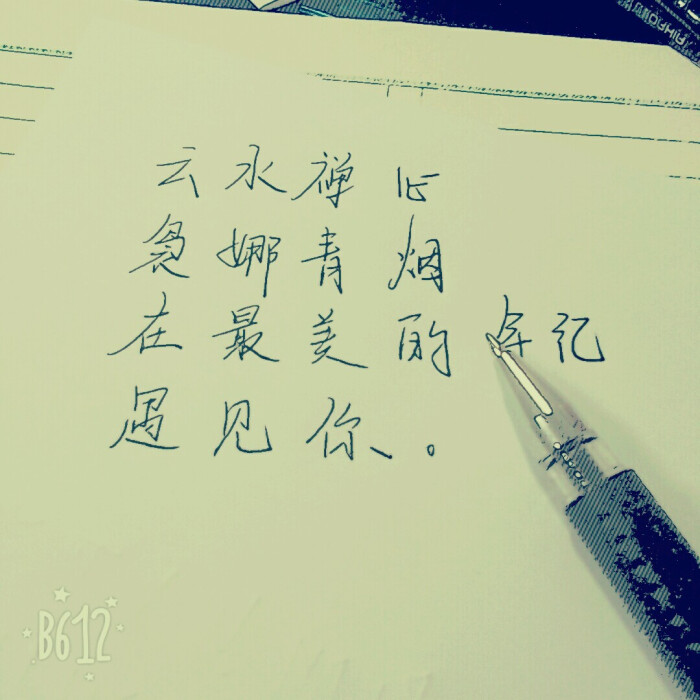 云水禅心
袅娜青烟
在最美的年记
遇见你。
B612